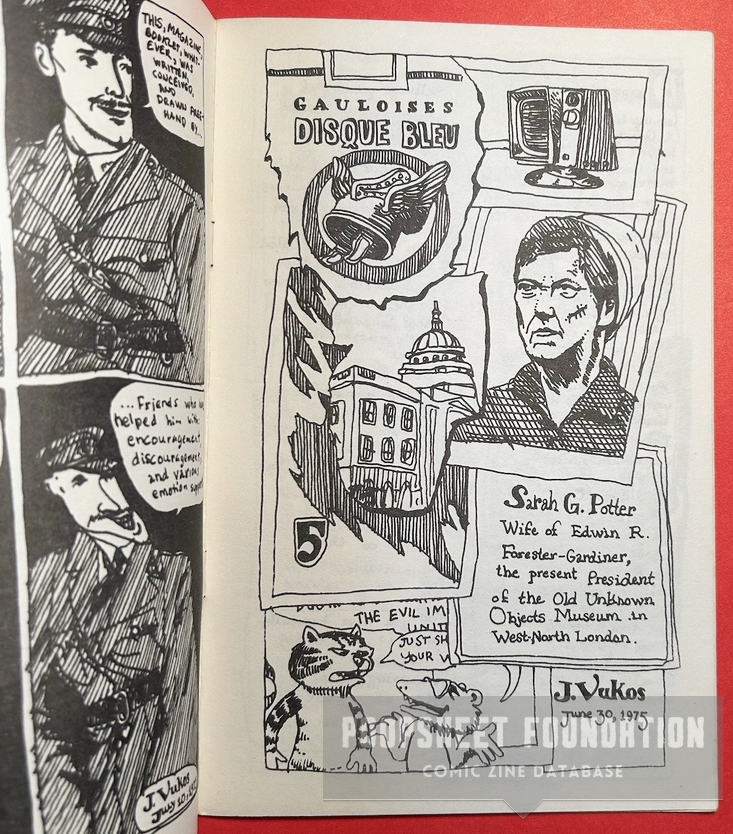 THIS, MAGAZINE,
BOOKLET, WHAT-
EVER, WAS
WRITTEN,
CONCEIVED,
AND
DRAWN FREE-
HAND BY...
...Friends who
helped him with
encouragement,
discouragement,
and various
emotion
J. Vukos
July 10,
GAULOISES
DISQUE BLEU
5
Sarah G. Potter
Wife of Edwin R.
Forester-Gardiner,
the present President
of the Old Unknown
Objects Museum in
West-North London.
THE EVIL IM
UNIT
JUST SH
YOUR
J. Vukos
June 30, 1975
POOPSHEET FOUNDATION
COMIC ZINE DATABASE